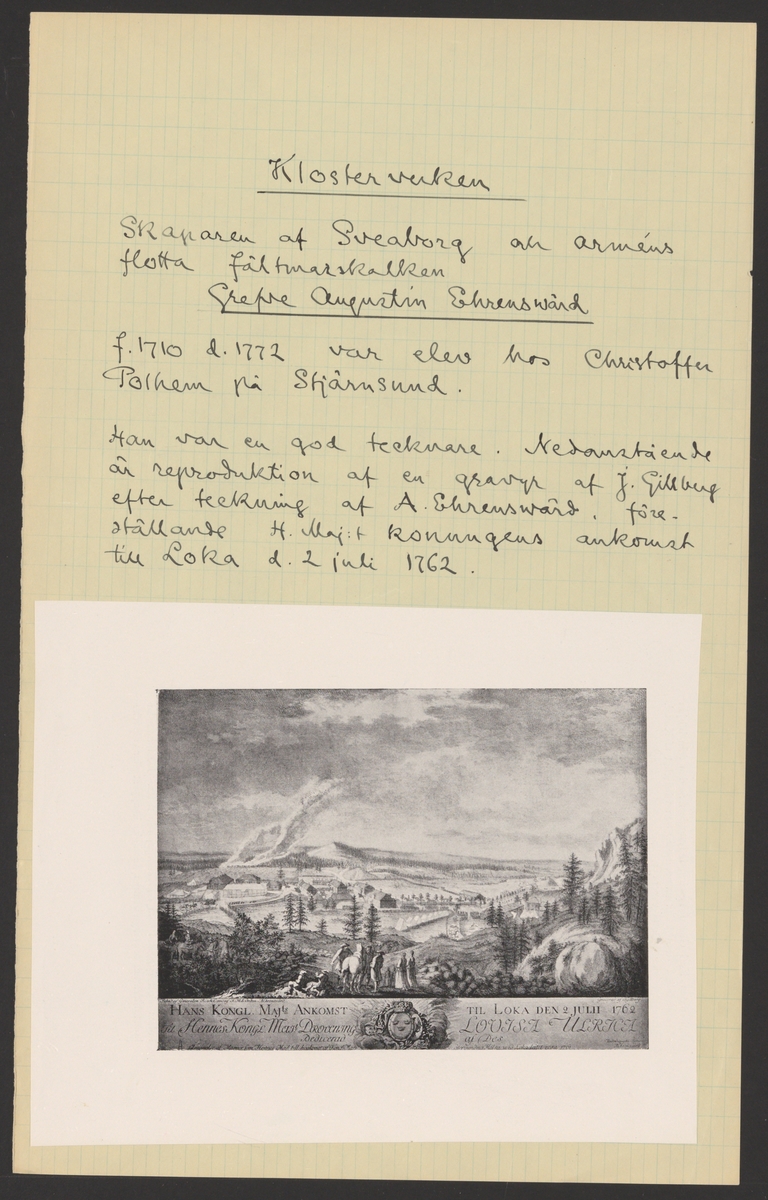 Klosterverken
Skaparen af Sveaborg och arméns
flotta fältmarskalken
Grefve Augustin Ehrenswärd
f. 1710 d. 1772 var elev hos Christoffer
Polhem på Stjärnsund.
Han var en god tecknare. Nedanstående
är reproduktion af en gravyr af J. Gillberg
efter teckning af A. Ehrenswärd, före-
ställande H. Maj:t konungens ankomst
till Loka d. 2 juli 1762.
HANS KONGL. MAJ:tz ANKOMST TIL LOKA DEN 2 JULII 1762
till Hennes Kongl. Maj:tz Drottning LOVISA ULRICA
Dedicerad af Des